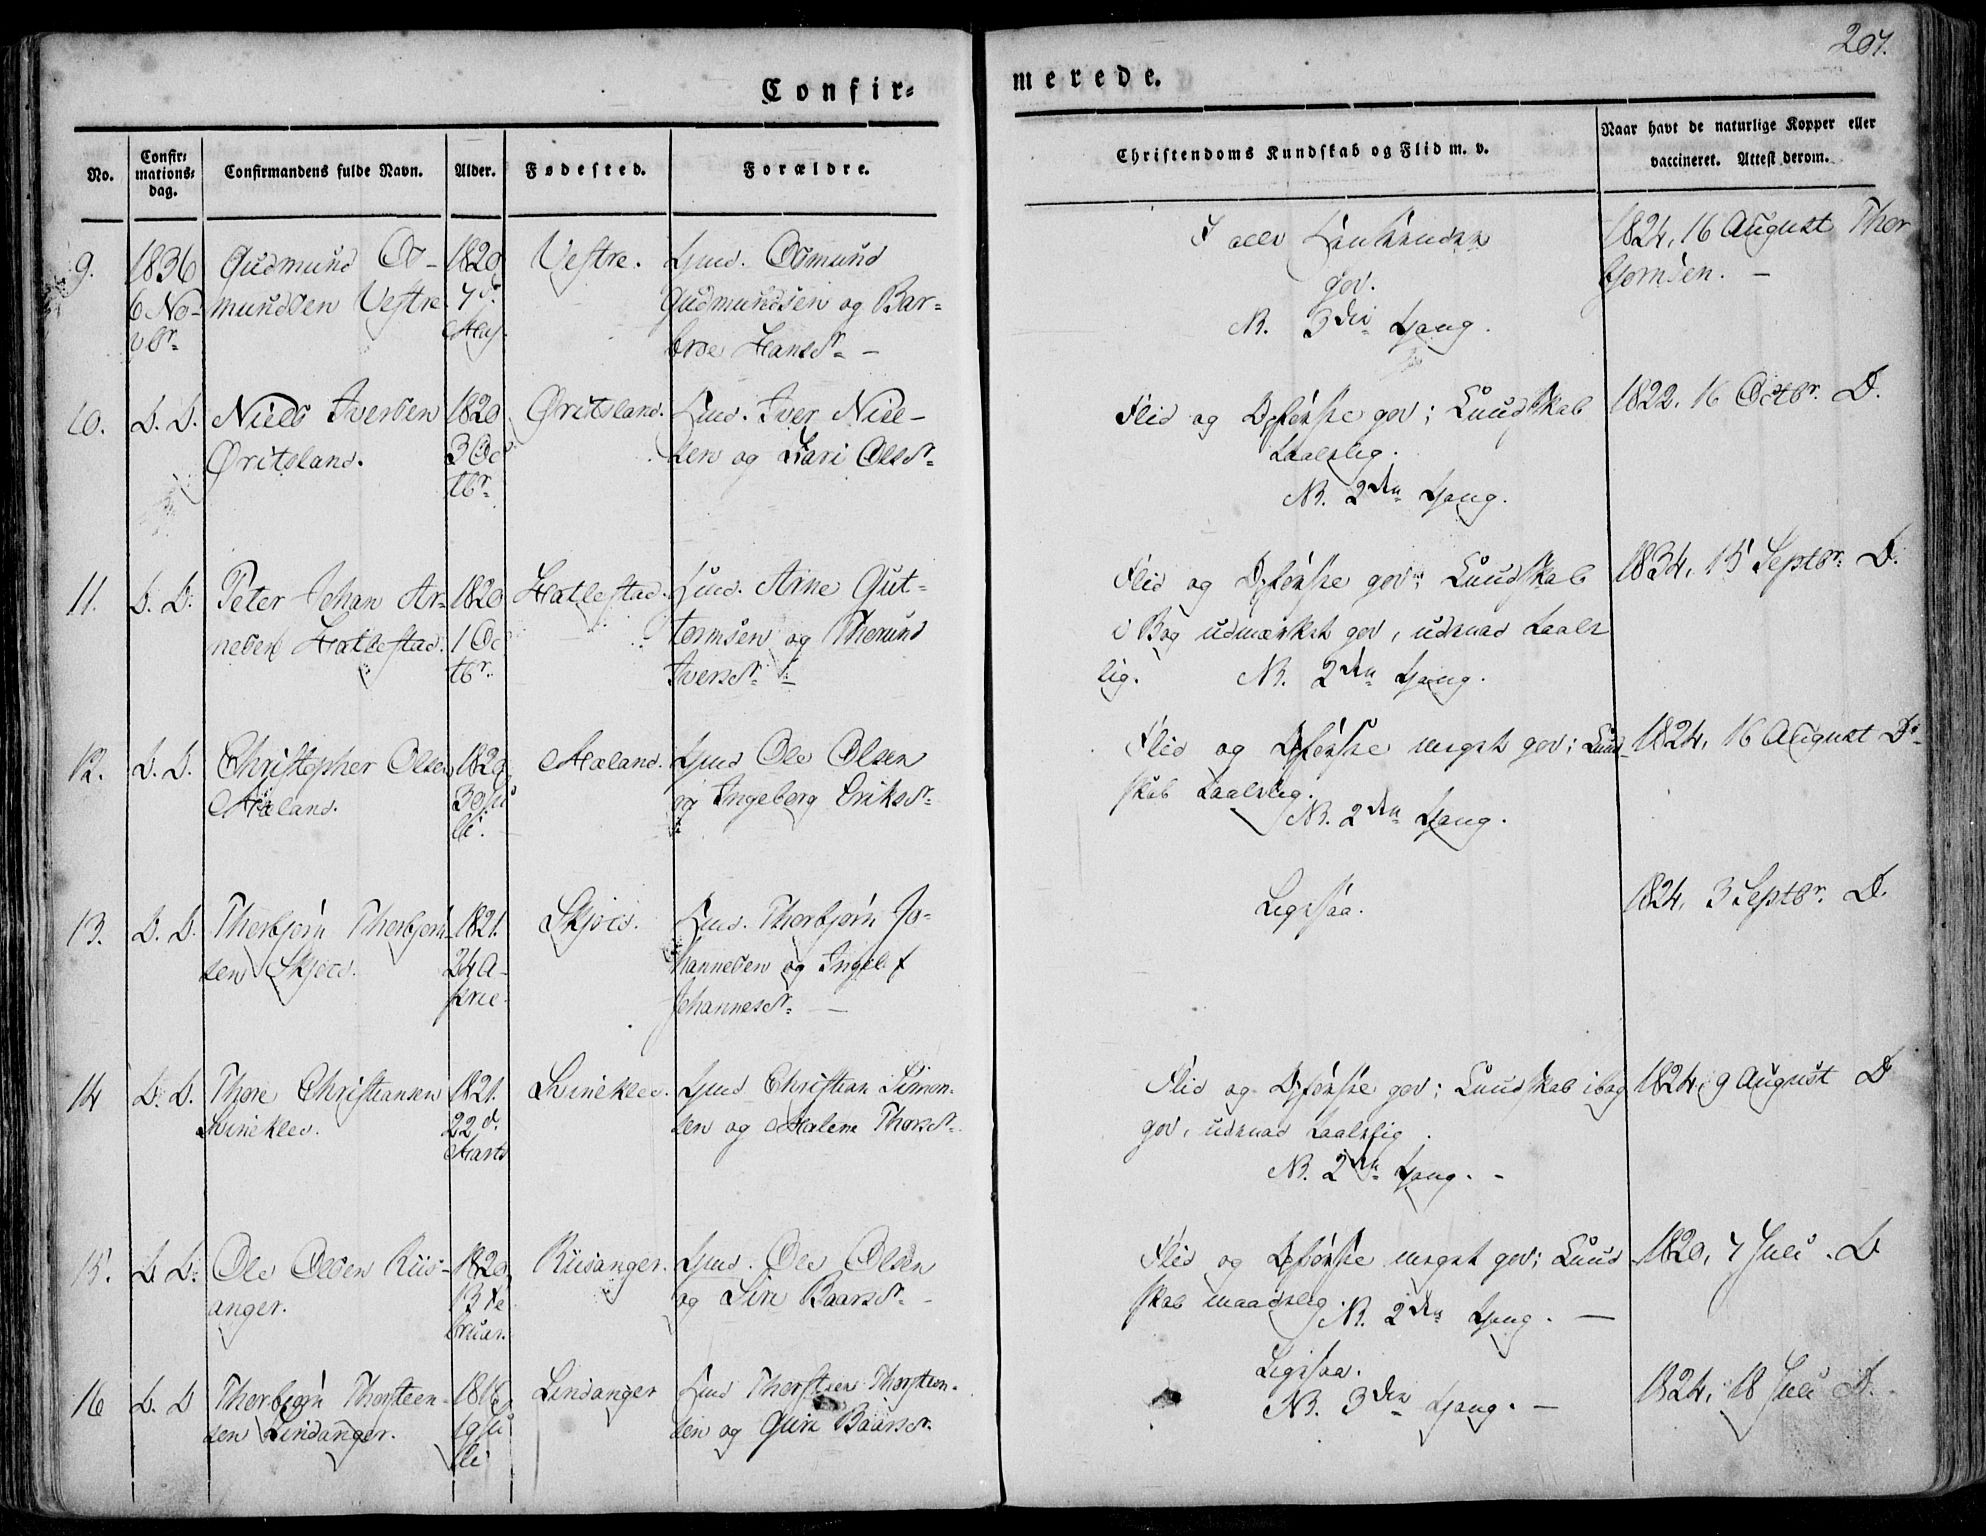 207.
Confir=
merede.
No.
Confir=
mations=
dag.
Confirmandens fulde Navn.
Alder.
Fødested.
Forældre.
Christendoms Kundskab og Flid m. v.
Naar havt de naturlige Kopper eller
vaccineret. Attest derom.
9.
1836
6 No-
vbr.
Gudmund Os-
mundsen Vestre
1820
7 d.
Maj.
Vestre.
Gmd. Osmund
Gudmundsen og Bar-
broe Hansdr. -
I alle Henseender
god.
NB. 3die Gang.
1824, 16 August Thor
bjørnsen. -
10.
D. D.
Niels Iversen
Øritsland.
1820
3 Oc
tbr.
Øritsland.
Huusd. Iver Niel-
sen og Kari Olsdr.
Flid og Opførsel god; Kundskab
taalelig.
NB. 2den Gang.
1822. 16 Octbr. D.
11.
D. D.
Peter Johan Ar-
nesen Hatlestad.
1820
1 Oc
tbr.
Hatlestad.
Huusd. Arne Gut-
tormsen og Thorund
Iversdr. -
Flid og Opførsel god; Kundskab
i Bog udmærket god, udenad taale
lig. NB. 2den Gang.
1834, 15 Septbr. D.
12.
D. D.
Christopher Olsen
Mæland.
1820
30 Ju
li.
Mæland.
Gmd Ole Olsen
og Ingeborg Eriksdr.
Flid og Opførsel meget god; Kund-
skab taalelig.
NB. 2den Gang.
1824, 16 August D.
13.
D. D.
Thorbjørn Thorbjørn-
sen Skjoes.
1821.
24 A-
pril.
Skjoes.
Huusd. Thorbjørn Jo-
hannesen og Ingel.
Johannesdr. -
Ligesaa.
1824, 3 Septbr. D.
14
D. D.
Thore Christiansen
Svineklev.
1821.
22 d.
Marts
Svineklev.
Gmd Christian Simon-
sen og Malene Thorsdr.
Flid og Opførsel god; Kundskab i bog
god, udenad taalelig.
NB. 2den Gang. -
1824, 9 August D
15.
D. D.
Ole Olsen Riis-
anger.
1820
13 Fe
bruar.
Riisanger.
Gmd. Ole Olsen
og Siri Baarsdr. -
Flid og Opførsel meget god; Kund
skab maadelig. NB. 2den Gang. -
1820, 7 Juli. D.
16
D. D
Thorbjørn Thorsteen-
sen Lindanger.
1818,
19 Ju
li
Lindanger
Huusd Thorsteen Thorsteen-
sen og Guri Baarsdr.
Ligesaa.
NB. 3die Gang. -
1824, 18 Juli D.